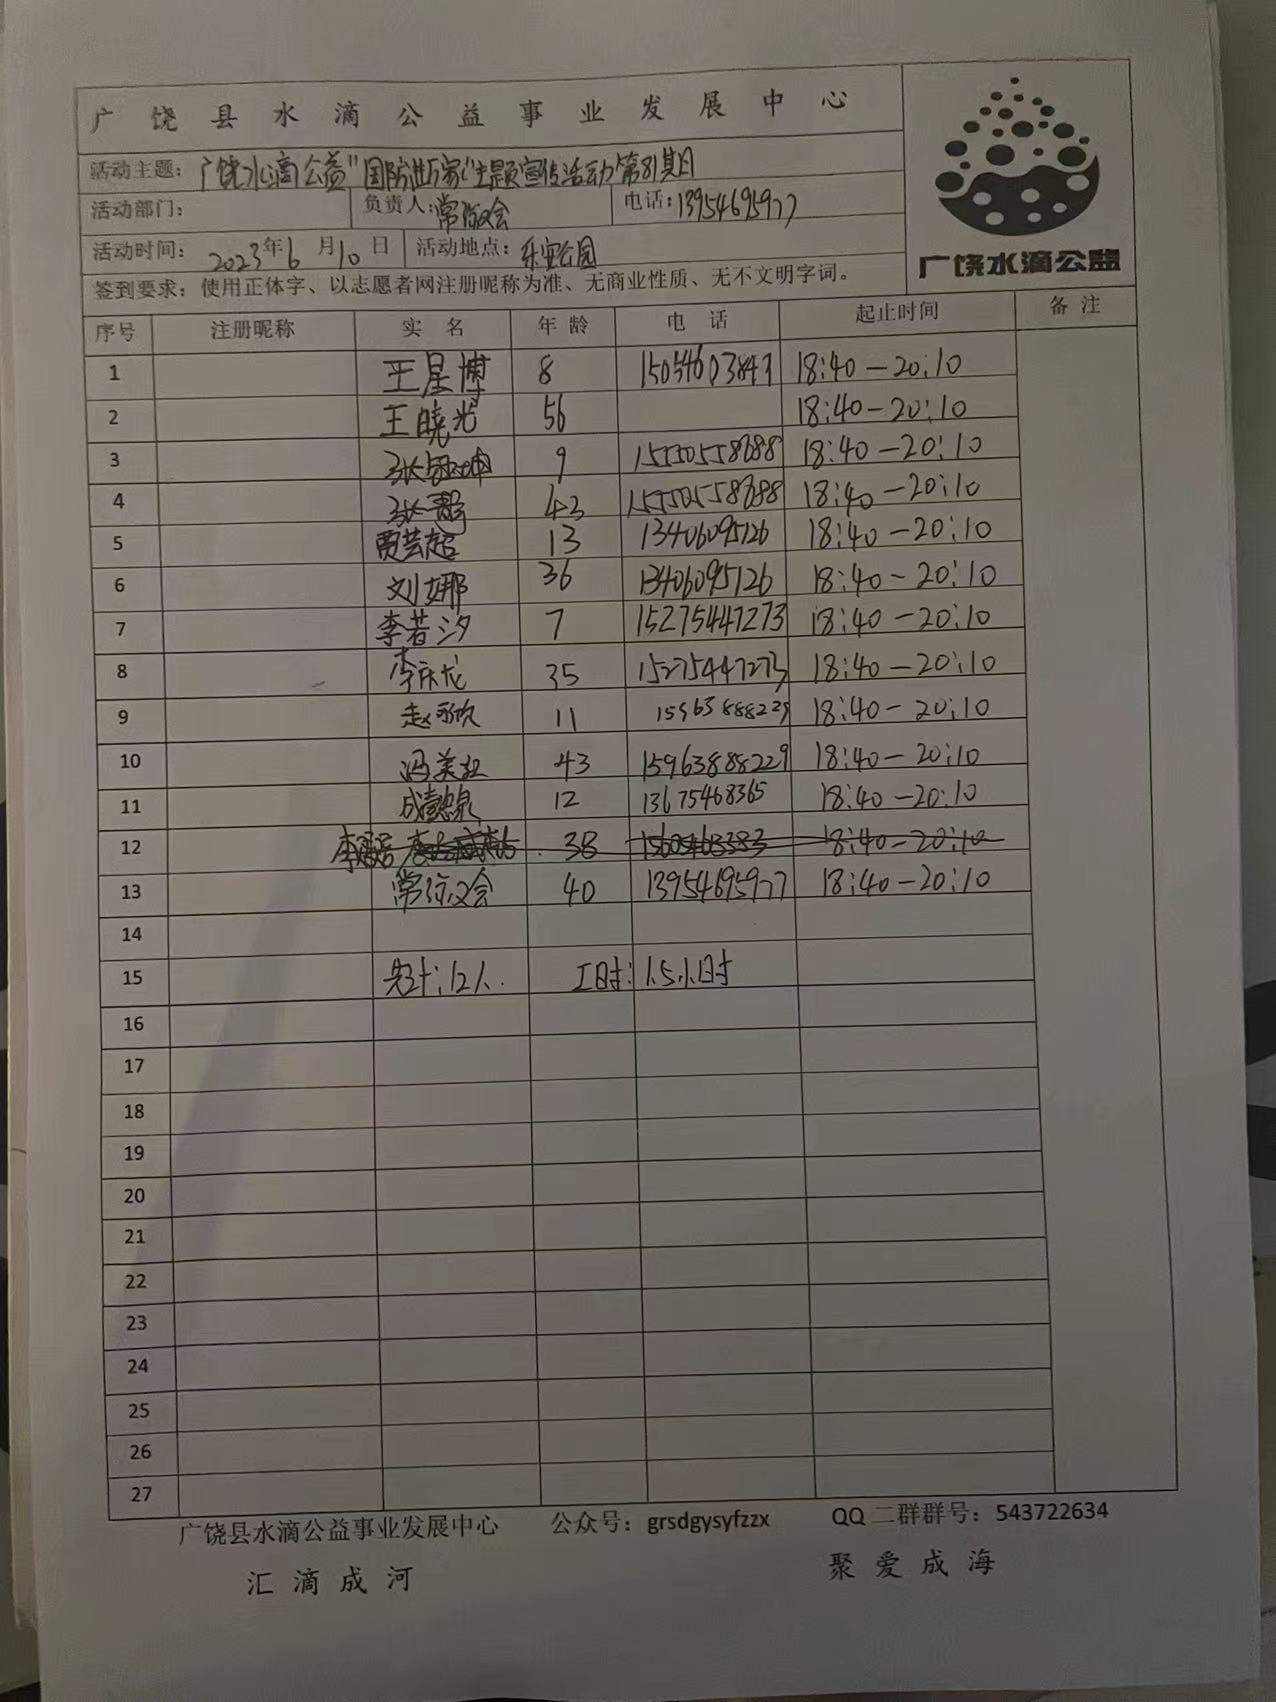 广饶县水滴公益事业发展中心
广饶水滴公益
活动主题：广饶水滴公益"国防进万家"主题宣传活动第81期
活动部门： 负责人：常 会 电话：13954695977
活动时间：2023年6月10日 活动地点：乐安公园
签到要求：使用正体字、以志愿者网注册昵称为准、无商业性质、无不文明字词。
序号 注册昵称 实名 年龄 电话 起止时间 备注
1 王星博 8 18:40-20:10
2 王晓光 56 18:40-20:10
3 张 坤 9 15550558688 18:40-20:10
4 张 43 15550558688 18:40-20:10
5 贾芸超 13 13406095126 18:40-20:10
6 刘娜 36 13406095126 18:40-20:10
7 李若汐 7 15275447273 18:40-20:10
8 李庆龙 35 15275447273 18:40-20:10
9 赵 欣 11 15963888229 18:40-20:10
10 冯美 43 15963888229 18:40-20:10
11 成 泉 12 13675468365 18:40-20:10
12 李 38 18:40-20:10
13 常 会 40 13954695977 18:40-20:10
14
15 共计：12人. 工时：1.5小时
16
17
18
19
20
21
22
23
24
25
26
27
广饶县水滴公益事业发展中心 公众号：grsdgysyfzzx QQ二群群号：543722634
汇滴成河 聚爱成海